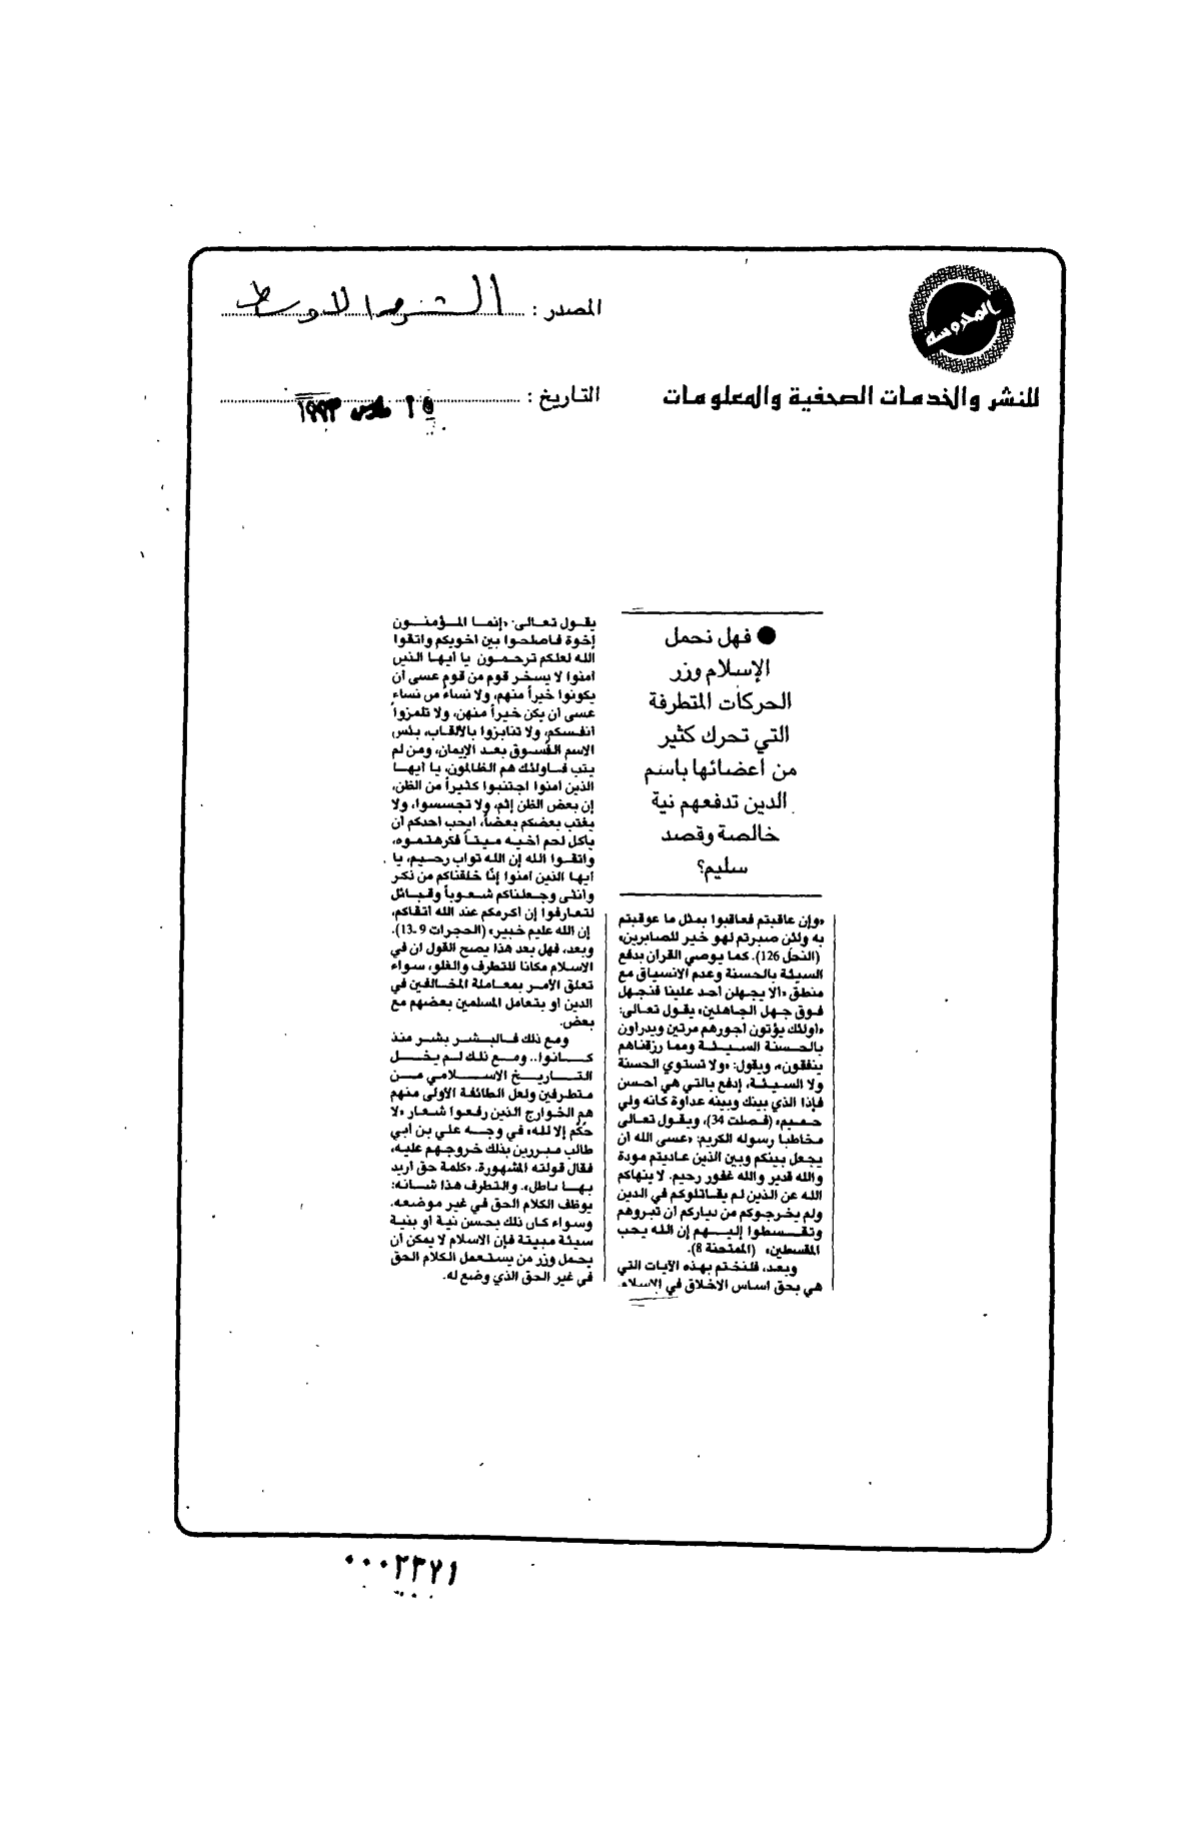 المحروسة
للنشر والخدمات الصحفية والمعلومات
المصدر : الشرق الاوسط
التاريخ : ٢٥ مارس ١٩٩٣
● فهل نحمل
الإسلام وزر
الحركات المتطرفة
التي تحرك كثير
من أعضائها باسم
الدين تدفعهم نية
خالصة وقصد
سليم؟
«وإن عاقبتم فعاقبوا بمثل ما عوقبتم
به ولئن صبرتم لهو خير للصابرين»
(النحل 126). كما يوصي القرآن بدفع
السيئة بالحسنة وعدم الانسياق مع
منطق «ألا يجهلن أحد علينا فنجهل
فوق جهل الجاهلين» يقول تعالى:
«أولئك يؤتون أجورهم مرتين ويدراون
بالحسنة السيئة ومما رزقناهم
ينفقون»، ويقول: «ولا تستوي الحسنة
ولا السيئة، إدفع بالتي هي أحسن
فإذا الذي بينك وبينه عداوة كأنه ولي
حميم» (فصلت 34)، ويقول تعالى
مخاطبا رسوله الكريم: «عسى الله أن
يجعل بينكم وبين الذين عاديتم مودة
والله قدير والله غفور رحيم. لا ينهاكم
الله عن الذين لم يقاتلوكم في الدين
ولم يخرجوكم من دياركم أن تبروهم
وتقسطوا إليهم إن الله يحب
المقسطين» (الممتحنة 8).
وبعد، فلنختم بهذه الآيات التي
هي بحق أساس الأخلاق في الإسلام.
يقول تعالى: «إنما المؤمنون
إخوة فاصلحوا بين أخويكم واتقوا
الله لعلكم ترحمون يا أيها الذين
آمنوا لا يسخر قوم من قوم عسى أن
يكونوا خيراً منهم، ولا نساءُ من نساء
عسى أن يكن خيراً منهن، ولا تلمزوا
أنفسكم، ولا تنابزوا بالألقاب، بئس
الاسم الفسوق بعد الإيمان، ومن لم
يتب فأولئك هم الظالمون، يا أيها
الذين آمنوا اجتنبوا كثيراً من الظن،
إن بعض الظن إثم، ولا تجسسوا، ولا
يغتب بعضكم بعضاً، أيحب أحدكم أن
يأكل لحم أخيه ميتاً فكرهتموه،
واتقوا الله إن الله تواب رحيم، يا
أيها الذين آمنوا إنّا خلقناكم من ذكر
وأنثى وجعلناكم شعوباً وقبائل
لتعارفوا إن أكرمكم عند الله أتقاكم،
إن الله عليم خبير» (الحجرات 9-13).
وبعد، فهل بعد هذا يصح القول ان في
الاسلام مكانا للتطرف والغلو، سواء
تعلق الأمر بمعاملة المخالفين في
الدين او بتعامل المسلمين بعضهم مع
بعض.
ومع ذلك فالبشر بشر منذ
كانوا.. ومع ذلك لم يخل
التاريخ الاسلامي من
متطرفين ولعل الطائفة الأولى منهم
هم الخوارج الذين رفعوا شعار «لا
حُكم إلا لله» في وجه علي بن أبي
طالب مبررين بذلك خروجهم عليه،
فقال قولته المشهورة. «كلمة حق أريد
بها باطل». والتطرف هذا شأنه:
يوظف الكلام الحق في غير موضعه.
وسواء كان ذلك بحسن نية أو بنية
سيئة مبيتة فإن الاسلام لا يمكن أن
يحمل وزر من يستعمل الكلام الحق
في غير الحق الذي وضع له.
٠٠٠٢٣٧١